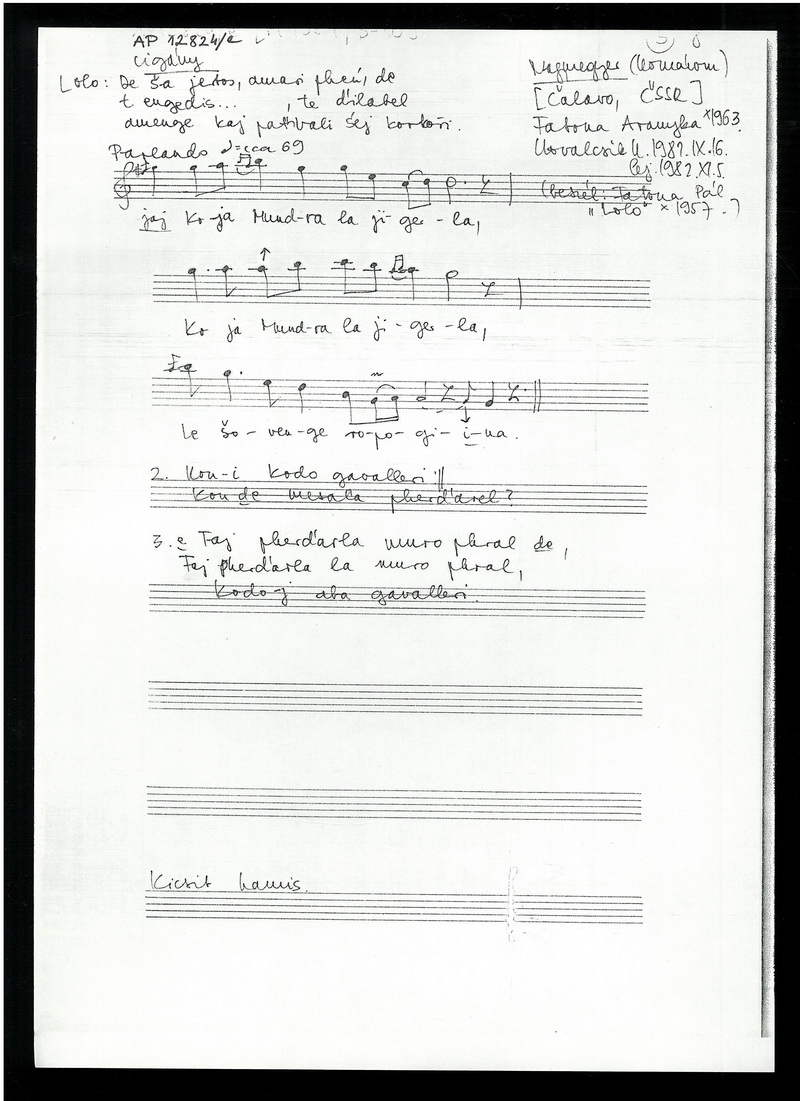 AP 12824/e
cigány
Lolo: De ša jertos, amari pheń, de
t engedis... , te d'ilabel
amenge kaj pativali šej korkoři.
Nagymegyer (Komárom)
[Čalovo, ČSSR]
Fatona Aranyka ×1963.
Kovalcsik K. 1982. IX. 16.
lej. 1982. XI. 5.
(beszél: Fatona Pál
"Lolo" × 1957.)
Parlando ♩=cca 69
jaj Ko-ja Mund-ra la ji-ger-la,
Ko ja Mund-ra la ji-ger-la,
le šo-ven-ge ro-po-gi-i-na.
2. Kon-i kodo gavalleri :||
Kon de mesala pherd'arel?
3. e Taj pherd'arla muro phral de,
Taj pherd'arla la muro phral,
Kodo-j aba gavalleri.
Kicsit hamis.